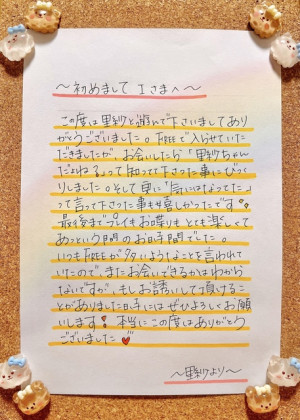 〜初めまして Iさまへ〜
この度は里紗と遊んで下さいましてあり
がとうございました。FREEで入らせていた
だきましたが、お会いしたら「里紗ちゃん
だよね」って知って下さった事にびっく
りしました。そして更に「気にはなってた」
って言って下さった事も嬉しかったです
最後までプレイもお喋りもとても楽しくて
あっという間のお時間でした。
いつもFREEが多いようなことを言われて
いたので、またお会いできるかはわから
ないですが、もしお誘いして頂けるこ
とがありました日時にはぜひよろしくお願
いします 本当にこの度はありがとう
ございました
〜里紗より〜